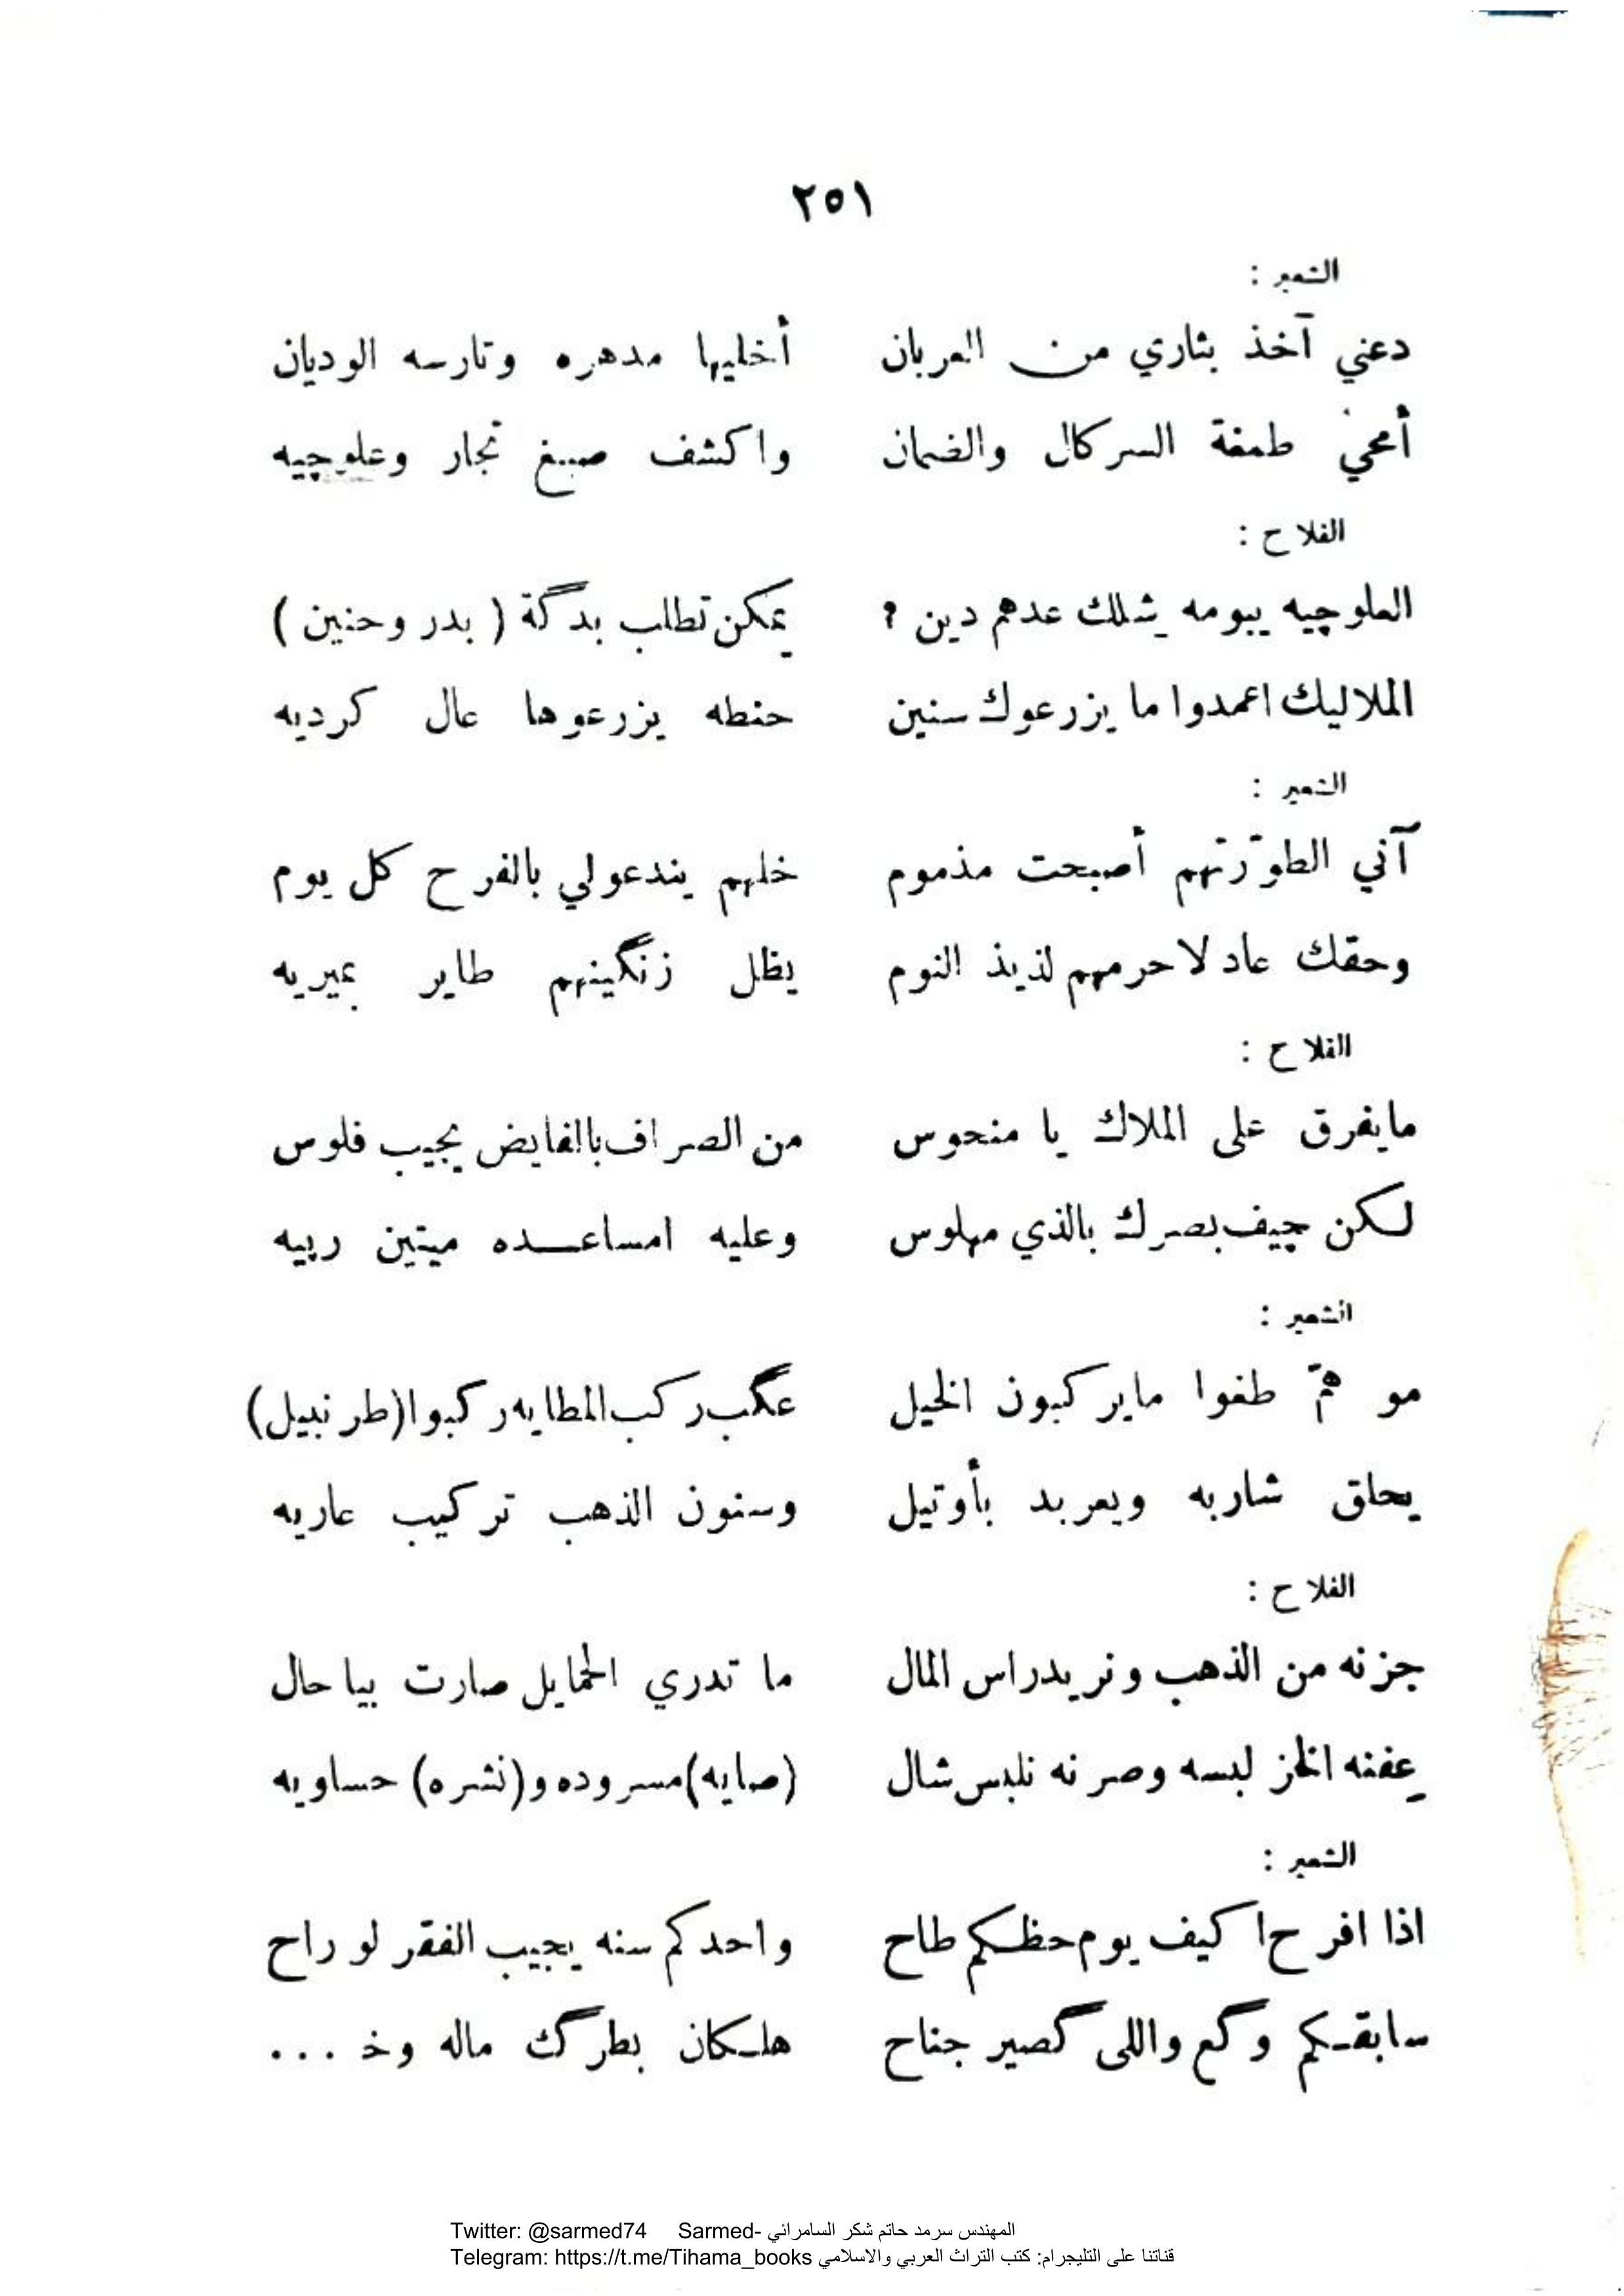 ٢٥١
الشعير :
دعني آخذ بثاري من العربان أخليها مدهره وتارسه الوديان
أمحي طمغة السركال والضمان واكشف صبغ تجار وعلوچيه
الفلاح :
العلوچيه يبومه يشلك عدهم دين ؟ يمكن تطلب بدگة ( بدر وحنين )
الملاليك اعمدوا ما يزرعوك سنين حنطه يزرعوها عال كرديه
الشعير :
آني الطوّرتهم أصبحت مذموم خلهم يندعولي بالفرح كل يوم
وحقك عاد لاحرمهم لذيذ النوم يظل زنگينهم طاير بميريه
الفلاح :
مايفرق على الملاك يا منحوس من الصراف بالفايض يجيب فلوس
لكن چيف بصرك بالذي مهلوس وعليه امساعده ميتين ربيه
الشعير :
مو همّ طغوا مايركبون الخيل عگب ركب المطايه ركبوا (طرنبيل)
يحلق شاربه ويعربد بأوتيل وسنون الذهب تركيب عاريه
الفلاح :
جزنه من الذهب ونريد راس المال ما تدري الحمايل صارت بيا حال
عفنه الخز لبسه وصرنه نلبس شال (صايه) مسروده و(نشره) حساويه
الشعير :
اذا افرح اكيف يوم حظكم طاح واحدكم سنه يجيب الفقر لو راح
سابقكم وگع واللى گصير جناح هلكان بطرگ ماله وخ ...
Twitter: @sarmed74 Sarmed- المهندس سرمد حاتم شكر السامرائي
Telegram: https://t.me/Tihama_books قناتنا على التليجرام: كتب التراث العربي والاسلامي